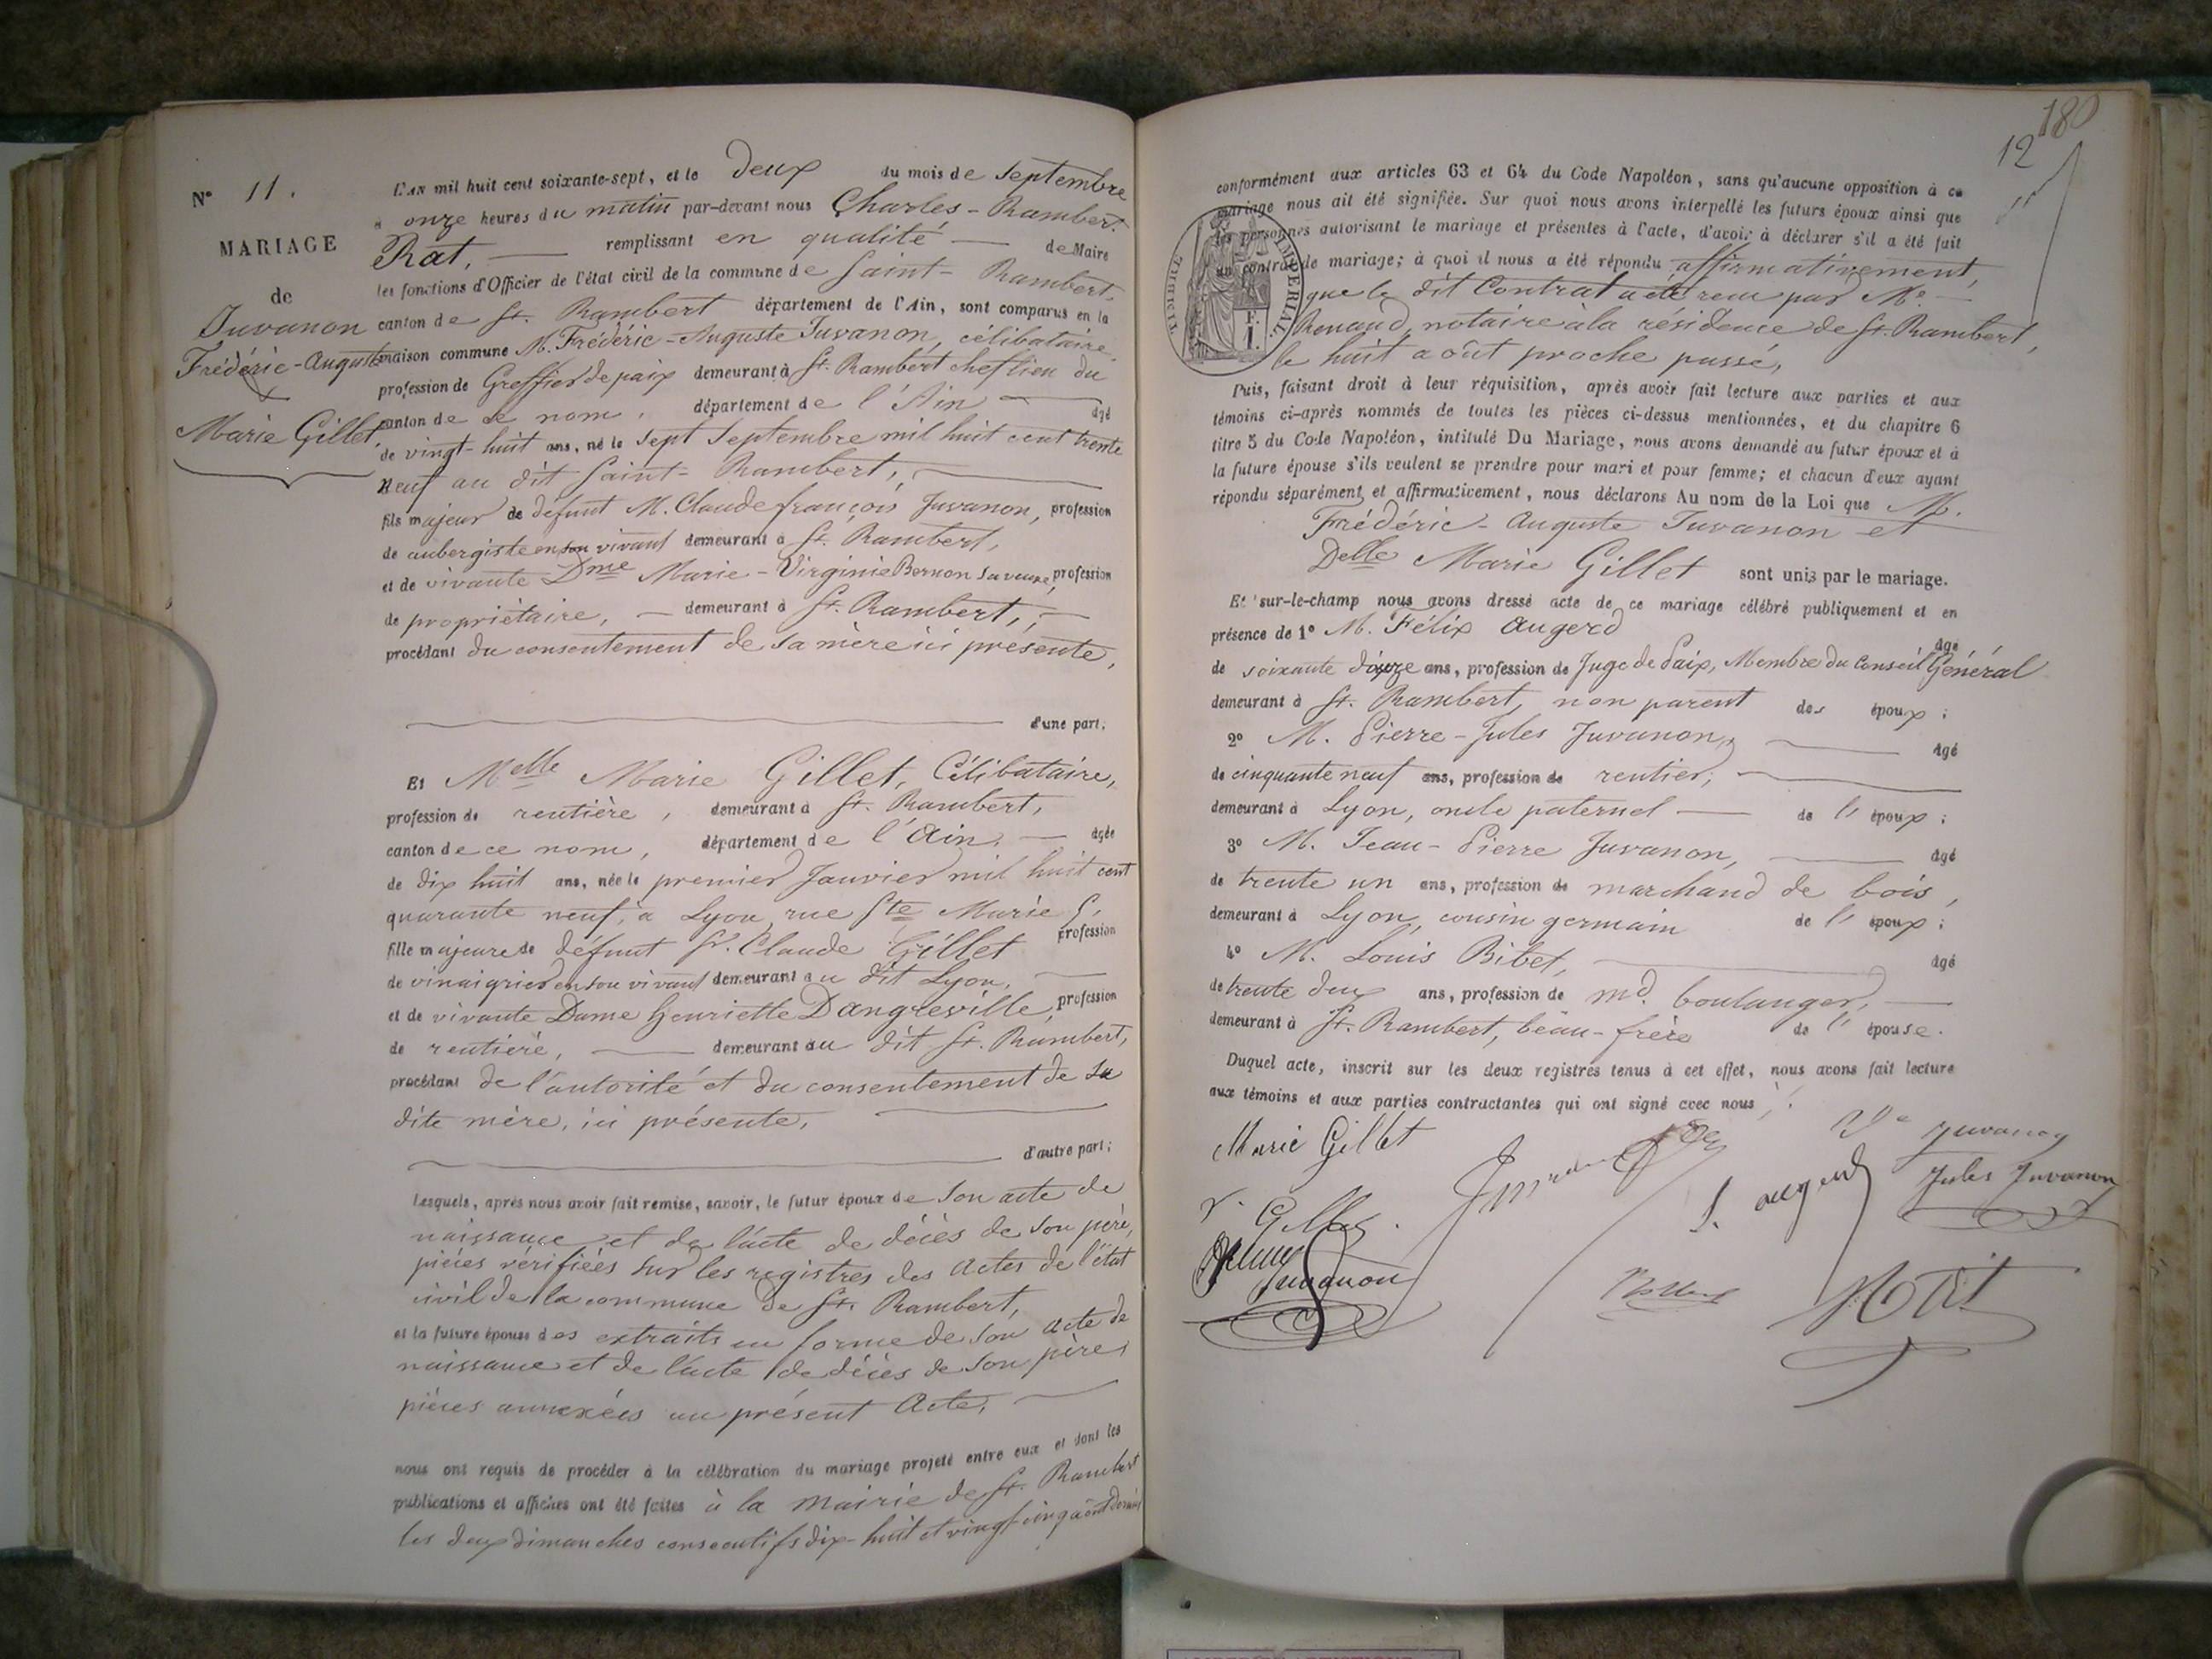 N° 11.
MARIAGE
de
Juvanon
Frédéric-Auguste
&
Marie Gillet,
L'AN mil huit cent soixante-sept, et le deux du mois de septembre
à onze heures du matin par-devant nous Charles-Rambert
Rat, remplissant en qualité de Maire
les fonctions d'Officier de l'état civil de la commune de Saint-Rambert,
canton de St. Rambert département de l'Ain, sont comparus en la
maison commune M. Frédéric-Auguste Juvanon, célibataire,
profession de Greffier de paix demeurant à St. Rambert chef lieu du
canton de ce nom, département de l'Ain âgé
de vingt-huit ans, né le sept septembre mil huit cent trente
neuf au dit Saint-Rambert,
fils majeur de défunt M. Claude françois Juvanon, profession
de aubergiste en son vivant demeurant à St. Rambert,
et de vivante Dme Marie-Virginie Bernon sa veuve, profession
de propriétaire, demeurant à St. Rambert,
procédant du consentement de sa mère ici présente,
d'une part;
Et Melle Marie Gillet, Célibataire,
profession de rentière, demeurant à St. Rambert,
canton de ce nom, département de l'Ain, âgée
de dix huit ans, née le premier Janvier mil huit cent
quarante neuf, à Lyon, rue Ste Marie 5,
fille majeure de défunt Sr. Claude Gillet profession
de vinaigrier en son vivant demeurant au dit Lyon,
et de vivante Dame Henriette Dangreville, profession
de rentière, demeurant au dit St. Rambert,
procédant de l'autorité et du consentement de sa
dite mère, ici présente,
d'autre part;
Lesquels, après nous avoir fait remise, savoir, le futur époux de son acte de
naissance et de l'acte de décès de son père,
pièces vérifiées sur les registres des actes de l'état
civil de la commune de St. Rambert,
et la future épouse des extraits en forme de son acte de
naissance et de l'acte de décès de son père,
pièces annexées au présent Acte,
nous ont requis de procéder à la célébration du mariage projeté entre eux et dont les
publications et affiches ont été faites à la Mairie de St. Rambert
les deux dimanches consécutifs dix-huit et vingt cinq août dernier
180
12
conformément aux articles 63 et 64 du Code Napoléon, sans qu'aucune opposition à ce
mariage nous ait été signifiée. Sur quoi nous avons interpellé les futurs époux ainsi que
les personnes autorisant le mariage et présentes à l'acte, d'avoir à déclarer s'il a été fait
un contrat de mariage; à quoi il nous a été répondu affirmativement,
que le dit Contrat a été reçu par Me.
Renaud, notaire à la résidence de St. Rambert,
le huit août proche passé,
TIMBRE IMPÉRIAL
F.
1.
Puis, faisant droit à leur réquisition, après avoir fait lecture aux parties et aux
témoins ci-après nommés de toutes les pièces ci-dessus mentionnées, et du chapitre 6
titre 5 du Code Napoléon, intitulé Du Mariage, nous avons demandé au futur époux et à
la future épouse s'ils veulent se prendre pour mari et pour femme; et chacun d'eux ayant
répondu séparément et affirmativement, nous déclarons Au nom de la Loi que M.
Frédéric-Auguste Juvanon et
Delle Marie Gillet sont unis par le mariage.
Et sur-le-champ nous avons dressé acte de ce mariage célébré publiquement et en
présence de 1° M. Félix Augerd âgé
de soixante douze ans, profession de Juge de Paix, Membre du Conseil Général
demeurant à St. Rambert, non parent des époux;
2° M. Pierre-Jules Juvanon, âgé
de cinquante neuf ans, profession de rentier,
demeurant à Lyon, oncle paternel de l'époux;
3° M. Jean-Pierre Juvanon, âgé
de trente un ans, profession de marchand de bois,
demeurant à Lyon, cousin germain de l'époux;
4° M. Louis Bibet, âgé
de trente deux ans, profession de md. boulanger,
demeurant à St. Rambert, beau-frère de l'épouse.
Duquel acte, inscrit sur les deux registres tenus à cet effet, nous avons fait lecture
aux témoins et aux parties contractantes qui ont signé avec nous.
Marie Gillet
Ve Juvanon
f. augerd
Jules Juvanon
Juvanon